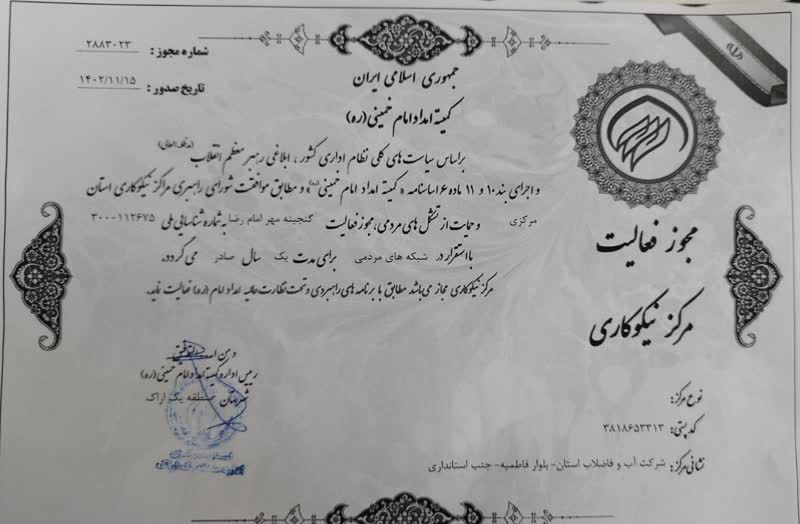 شماره مجوز: ۲۸۸۳۰۲۳
تاریخ صدور: ۱۴۰۲/۱۱/۱۵
جمهوری اسلامی ایران
کمیته امداد امام خمینی(ره)
براساس سیاست های کلی نظام اداری کشور، ابلاغی رهبر معظم انقلاب (مدظله العالی)
و اجرای بند ۱۰ و ۱۱ ماده ۶ اساسنامه «کمیته امداد امام خمینی(ره)» و مطابق موافقت شورای راهبری مراکز نیکوکاری استان
مرکزی و حمایت از تشکل های مردمی، مجوز فعالیت گنجینه مهر امام رضا به شماره شناسایی ملی ۳۰۰۰۱۱۲۶۷۵
با استقرار در شبکه های مردمی برای مدت یک سال صادر می گردد.
مرکز نیکوکاری مجاز می باشد مطابق با برنامه های راهبردی و تحت نظارت عالیه امداد امام (ره) فعالیت نماید.
مجوز فعالیت
مرکز نیکوکاری
و من الله التوفیق
رییس اداره کمیته امداد امام خمینی(ره)
شهرستان منطقه یک اراک
نوع مرکز:
کد پستی: ۳۸۱۸۶۵۳۳۱۳
نشانی مرکز: شرکت آب و فاضلاب استان- بلوار فاطمیه- جنب استانداری